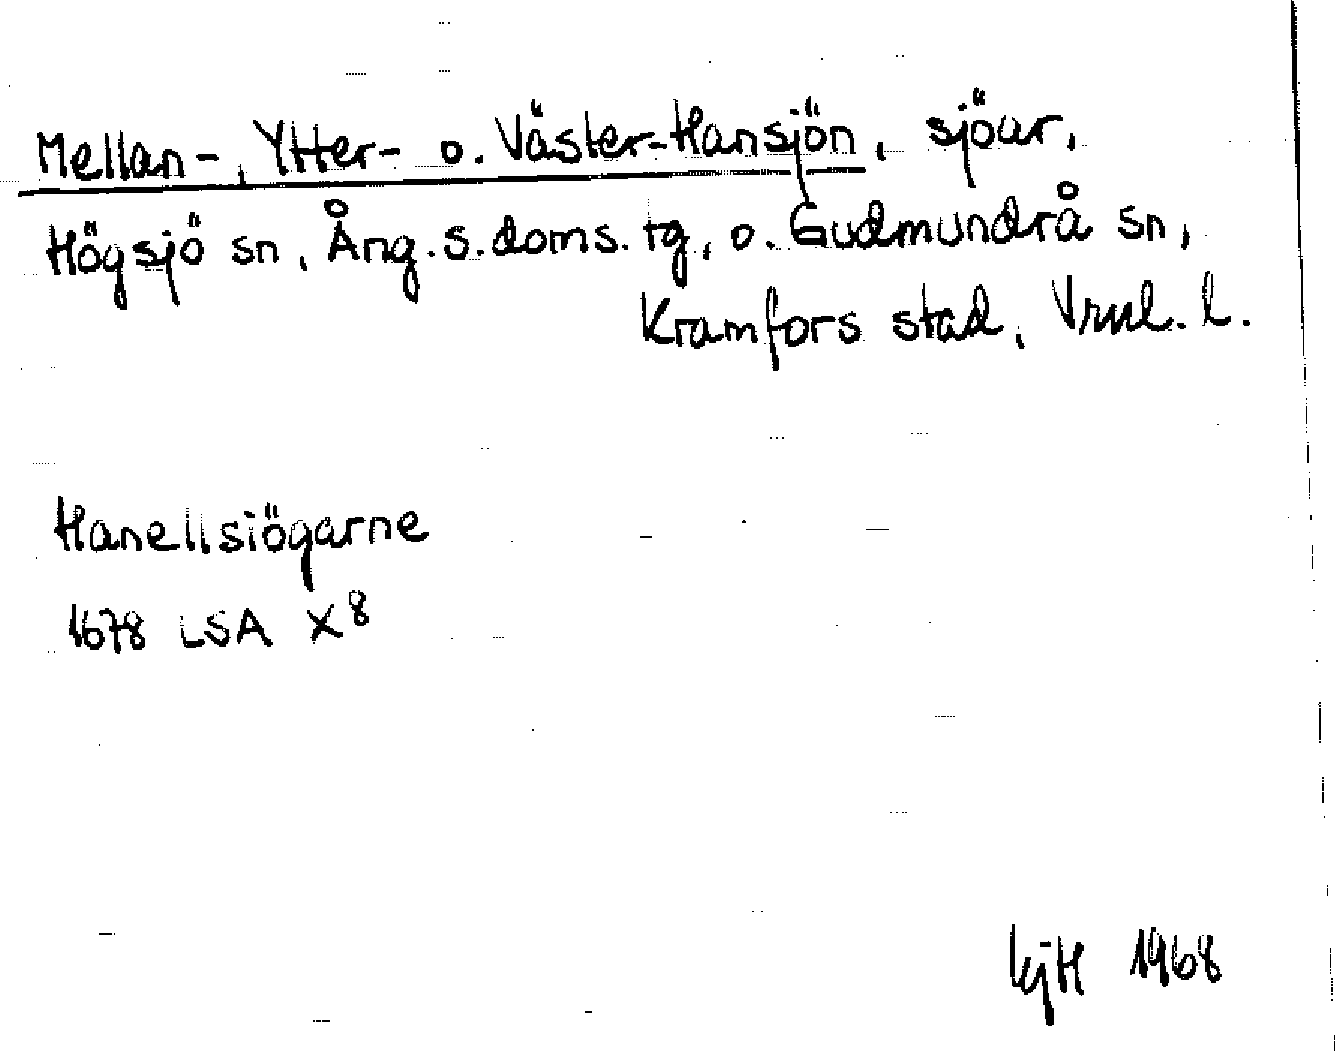 Mellan-, Ytter- o. Väster-Hansjön, sjöar,
Högsjö sn, Ång. s. doms. tg, o. Gudmundrå sn,
Kramfors stad, Vrnl. l.
Hanellsiögarne
1678 LSA X8
KjH 1968